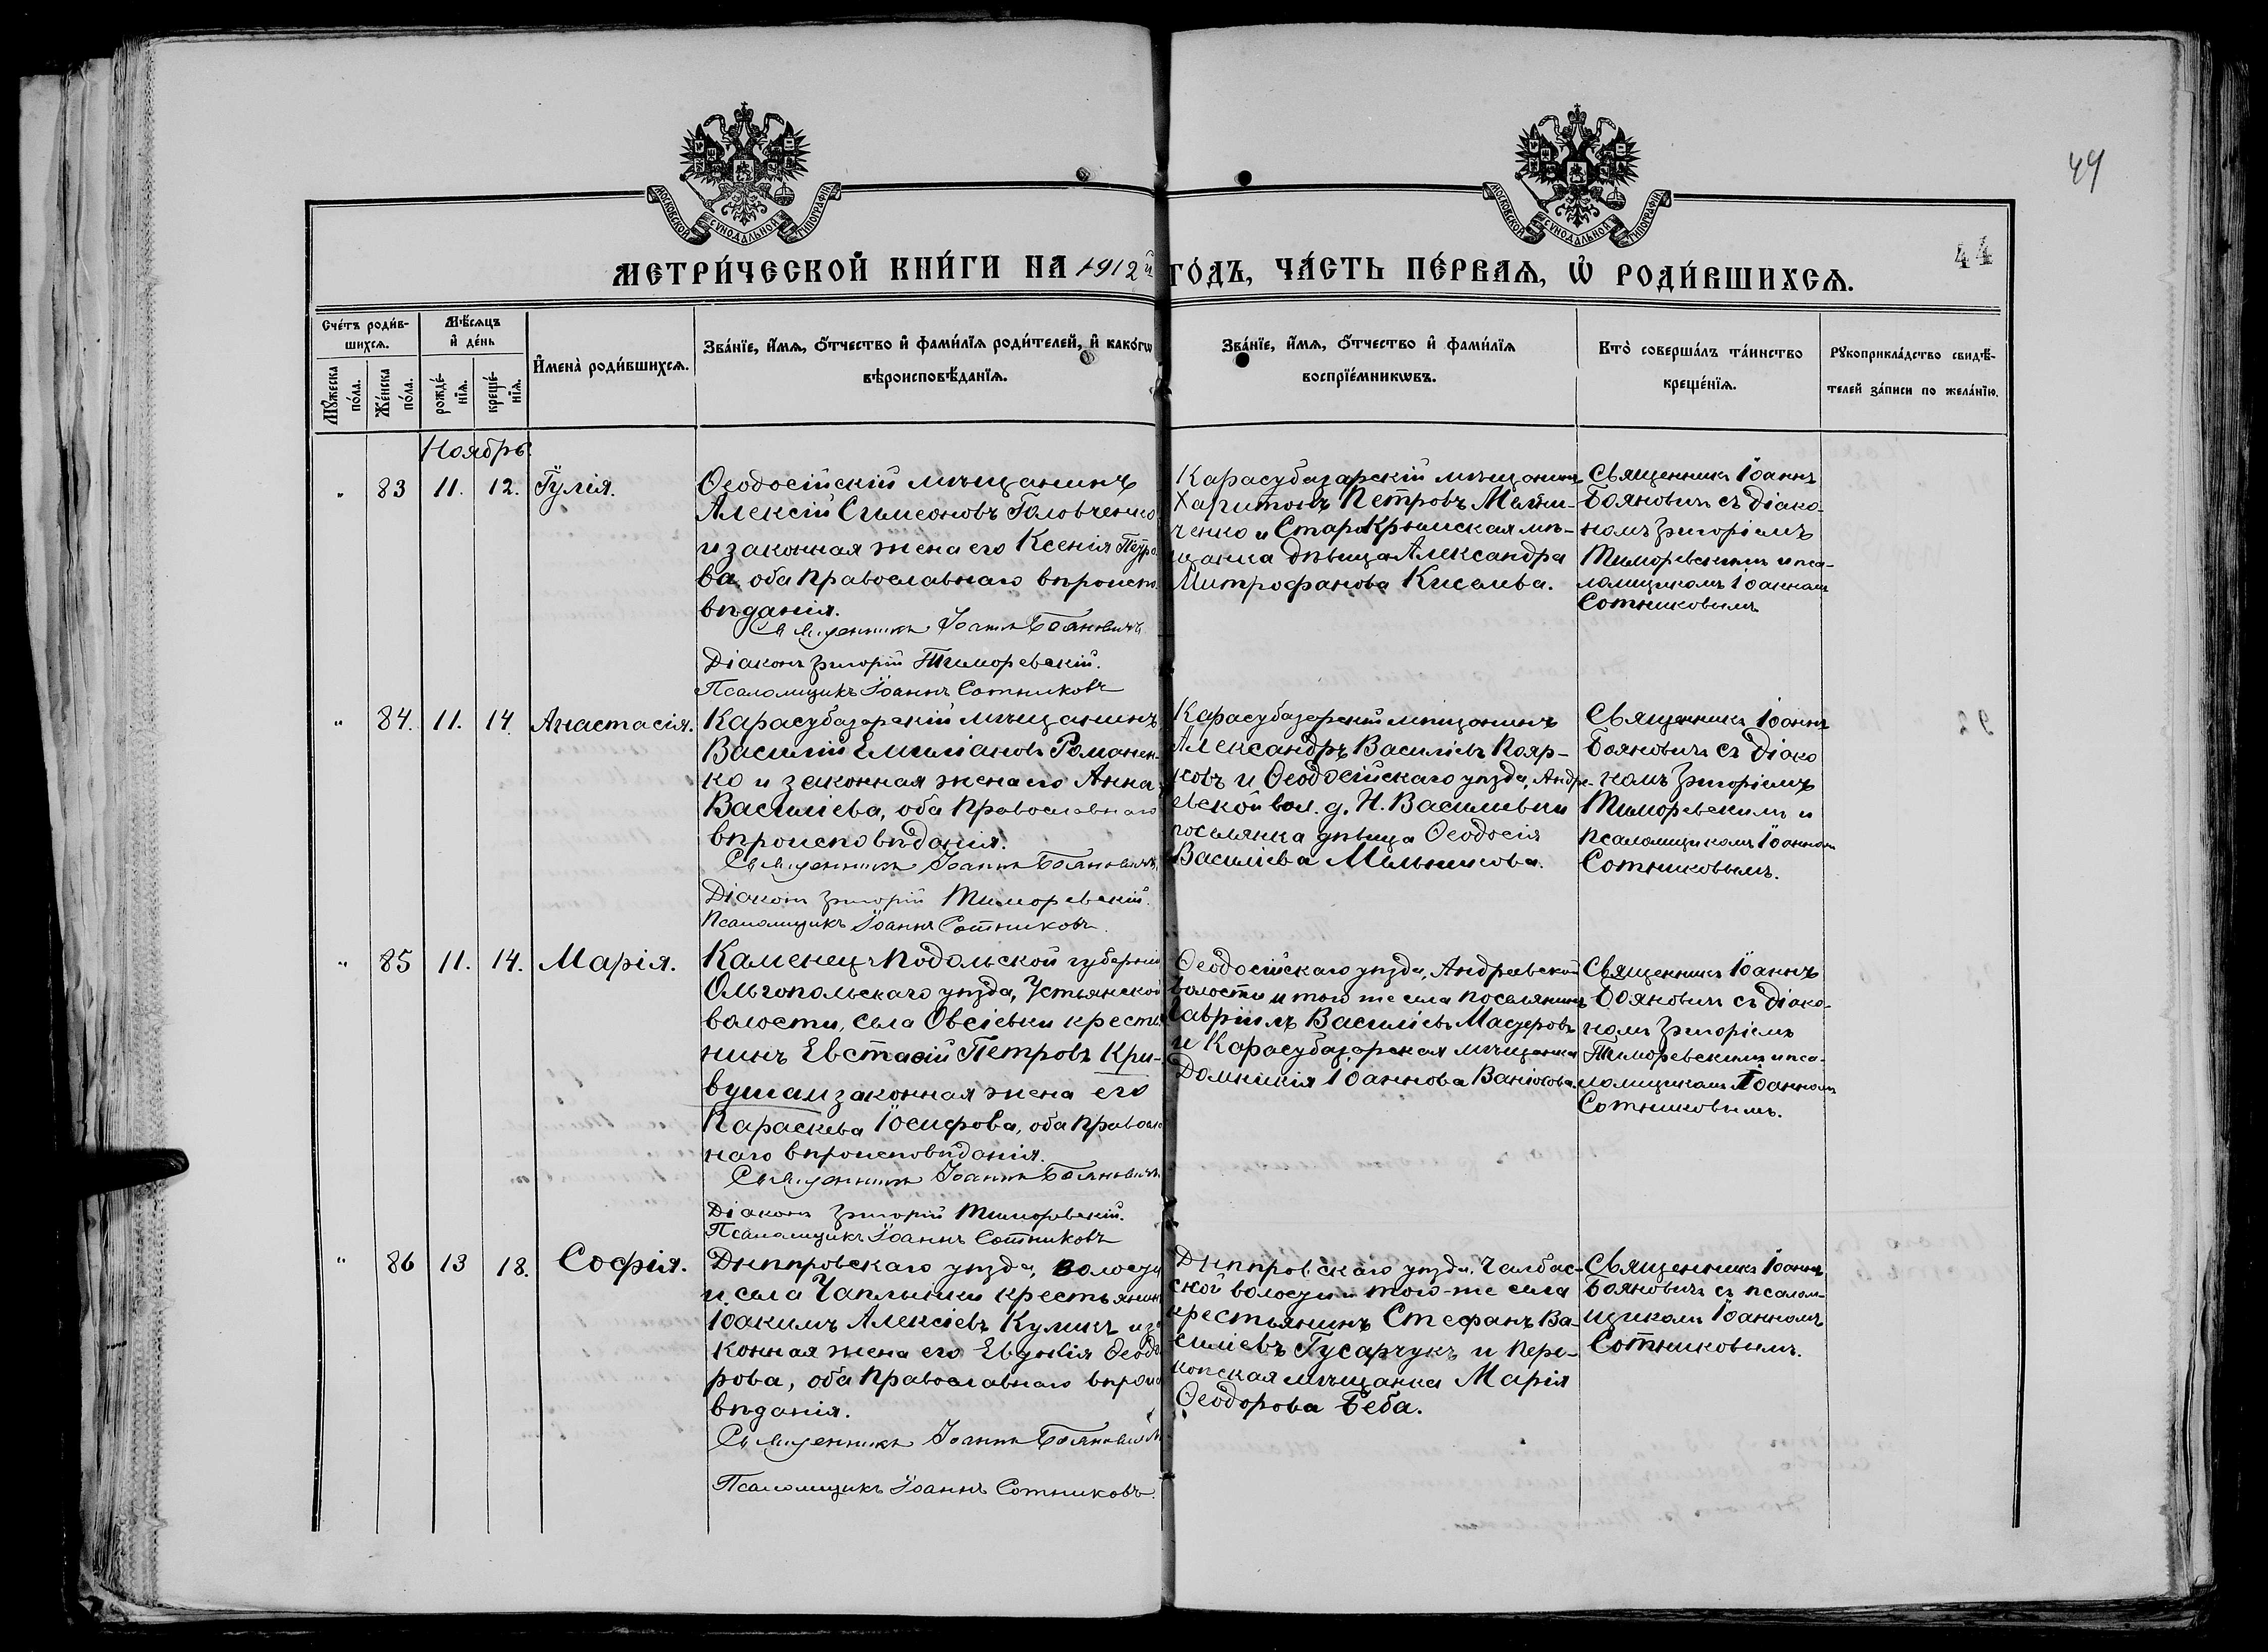 49
44
МОСКОВСКОЙ СѴНОДАЛЬНОЙ ТИПОГРАФІИ
МОСКОВСКОЙ СѴНОДАЛЬНОЙ ТИПОГРАФІИ
МЕТРИ́ЧЕСКОЙ КНИ́ГИ НА 1912й ГО́ДЪ, ЧА́СТЬ ПЕ́РВАѦ, Ѡ҆ РОДИ́ВШИХСѦ.
Сче́тъ роди́в-
шихсѧ.
Мѣ́сѧцъ
и҆ де́нь
Мꙋ́жеска
по́ла.
Же́нска
по́ла.
рожде́-
нїѧ.
креще́-
нїѧ.
И҆мена̀ роди́вшихсѧ.
Зва́нїе, и҆́мѧ, ѻ҆́тчество и҆ фами́лїѧ роди́телей, и҆ како́гѡ
вѣроисповѣ́данїѧ.
Зва́нїе, и҆́мѧ, ѻ҆́тчество и҆ фами́лїѧ
воспрїе́мникѡвъ.
Кто̀ соверша́лъ та́инство
креще́нїѧ.
Рꙋкоприкла́дство свидѣ́-
телей за́писи по жела́нїю.
Ноябрь.
" 83 11. 12. Іулія.
Ѳеодосійскій мѣщанинъ
Алексій Симеоновъ Головченко
и законная жена его Ксенія Петро
ва, оба православнаго вѣроиспо
вѣданія.
Священникъ Іоаннъ Бояновичъ
Діаконъ Григорій Тиморевскій.
Псаломщикъ Іоаннъ Сотниковъ
Карасубазарскій мѣщанинъ
Харитонъ Петровъ
ченко и Старокрымская мѣ-
щанка дѣвица Александра
Митрофанова Киселева.
Священникъ Іоаннъ
Бояновичъ съ діако-
номъ Григоріемъ
Тиморевскимъ и пса-
ломщикомъ Іоанномъ
Сотниковымъ
" 84. 11. 14. Анастасія.
Карасубазарскій мѣщанинъ
Василій Емиліановъ Романен-
ко и законная жена его Анна
Василіева, оба православнаго
вѣроисповѣданія.
Священникъ Іоаннъ Бояновичъ
Діаконъ Григорій Тиморевскій.
Псаломщикъ Іоаннъ Сотниковъ.
Карасубазарскій мѣщанинъ
Александръ Василіевъ Пояр-
ковъ и Ѳеодосійскаго уѣзда, Андре-
евской вол. д. Н. Васильевки
поселянка дѣвица Ѳеодосія
Василіева Мельникова.
Священникъ Іоаннъ
Бояновичъ съ діако
номъ Григоріемъ
Тиморевскимъ и
псаломщикомъ Іоанномъ
Сотниковымъ.
" 85 11. 14. Марія.
Каменец-Подольской губерніи
Ольгопольскаго уѣзда, Устьянской
волости, села Овсіевки крестья
нинъ Евстафій Петровъ Кри-
вуша и законная жена его
Параскева Іосифова, оба правосла
наго вѣроисповѣданія.
Священникъ Іоаннъ Бояновичъ
Діаконъ Григорій Тиморевскій.
Псаломщикъ Іоаннъ Сотниковъ
Ѳеодосійскаго уѣзда, Андреевской
волости и того же села поселянинъ
Гавріилъ Василіевъ Мадеровъ
и Карасубазарская мѣщанка
Домникія Іоаннова Ванюкова.
Священникъ Іоаннъ
Бояновичъ съ діако-
номъ Григоріемъ
Тиморевскимъ и пса-
ломщикомъ Іоанномъ
Сотниковымъ.
" 86 13 18. Софія.
Днѣпровскаго уѣзда, волости
и села Чаплынки крестьянинъ
Іоакимъ Алексіевъ Куликъ и за
конная жена его Евѳимія Ѳеодо
рова, оба православнаго вѣроис
вѣданія.
Священникъ Іоаннъ Бояновичъ
Псаломщикъ Іоаннъ Сотниковъ.
Днѣпровскаго уѣзда, Чалбас-
ской волости и того-же села
крестьянинъ Стефанъ Ва-
силіевъ Гусарчукъ и Пере-
копская мѣщанка Марія
Ѳеодорова Беба.
Священникъ Іоаннъ
Бояновичъ съ псалом-
щикомъ Іоанномъ
Сотниковымъ.